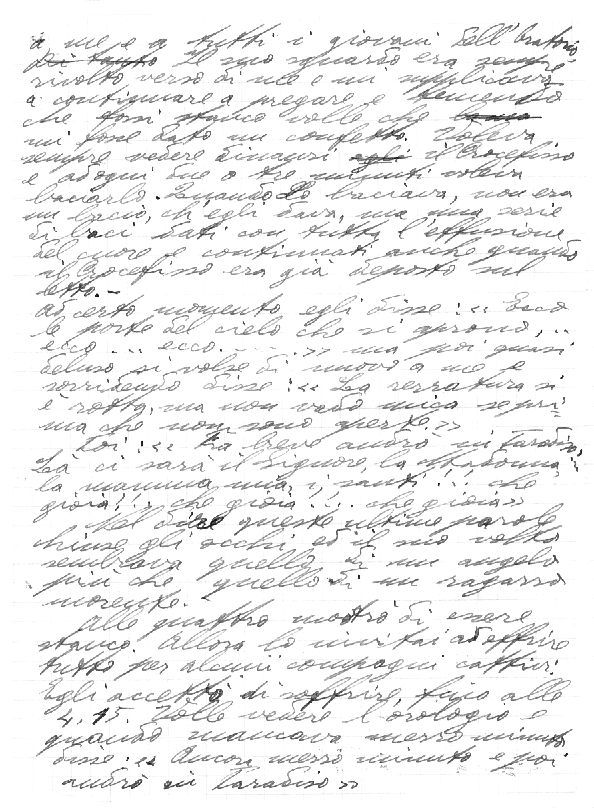 a me e a tutti i giovani dell'Oratorio
Di tanto Il suo sguardo era sempre
rivolto verso di me e mi supplicava
a continuare a pregare e temendo
che fossi stanco volle che
mi fosse dato un confetto. Voleva
sempre vedere dinanzi egli il Crocefisso
e ad ogni due o tre minuti voleva
baciarlo. Quando Lo baciava, non era
un bacio, ch'egli dava, ma una serie
di baci dati con tutta l'effusione
del cuore e continuati anche quando
il Crocefisso era già deposto sul
letto.-
Ad certo momento egli disse: << Ecco
le porte del cielo che si aprono, ..
ecco ... ecco ..... >> ma poi quasi
deluso si volse di nuovo a me e
sorridendo disse: << La serratura si
è rotta, ma non vado mica se pri-
ma che non sono aperte. >>
Poi: << Fra breve andrò in Paradiso,
La ci sarà il Signore, la Madonna
la mamma mia, i santi ... che
gioia! .. che gioia ... che gioia >>
Nel dire queste ultime parole
chiuse gli occhi ed il suo volto
sembrava quello di un angelo
più che quello di un ragazzo
morente.
Alle quattro mostrò di essere
stanco. Allora lo invitai ad offrire
tutto per alcuni compagni cattivi.
Egli accettò di soffrire, fino alle
4,15. Volle vedere l'orologio e
quando mancava mezzo minuto
disse: << Ancora mezzo minuto e poi
andrò in Paradiso >>